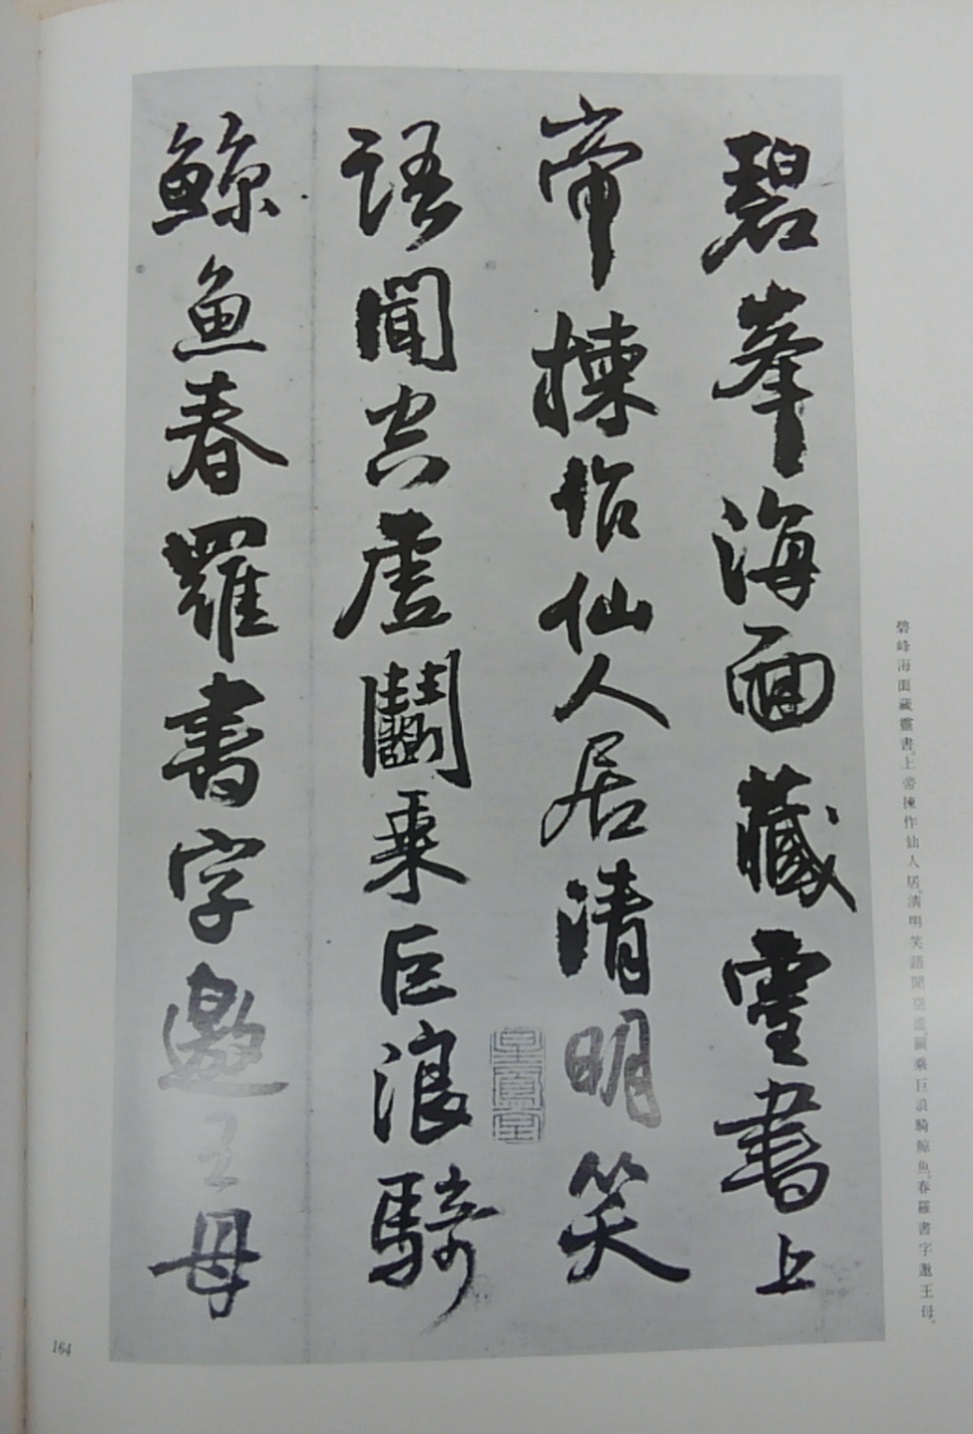 碧峯海面藏靈書上
帝揀作仙人居清明笑
語聞空虛鬭乘巨浪騎
鯨魚春羅書字邀王母
碧峰海面藏靈書。上帝揀作仙人居。清明笑語聞空虛。鬭乘巨浪騎鯨魚。春羅書字邀王母。
164